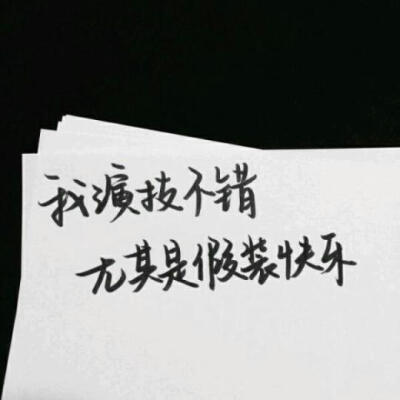 我演技不错
尤其是假装快乐